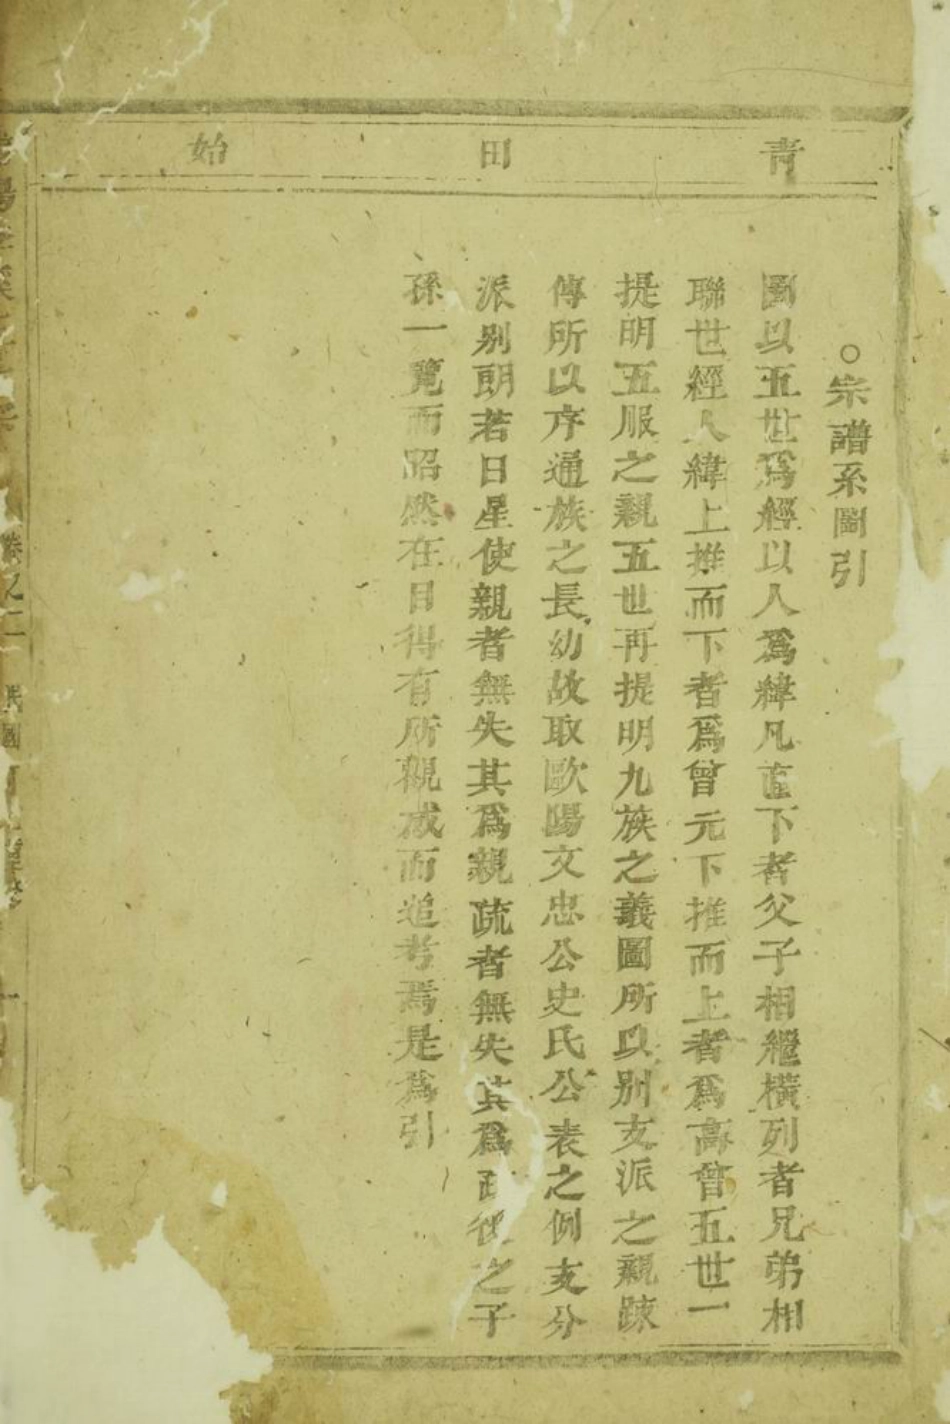 青田始
○宗譜系圖引
圖以五世爲經以人爲緯凡直下者父子相繼橫列者兄弟相
聯世經人緯上推而下者爲曾元下推而上者爲高曾五世一
提明五服之親五世再提明九族之義圖所以别支派之親踈
傳所以序通族之長幼故取歐陽文忠公史氏公表之例支分
派别朗若日星使親者無失其爲親疏者無失其爲疏後之子
孫一覽而昭然在目得有所觀感而追考焉是爲引
卷之二 民國